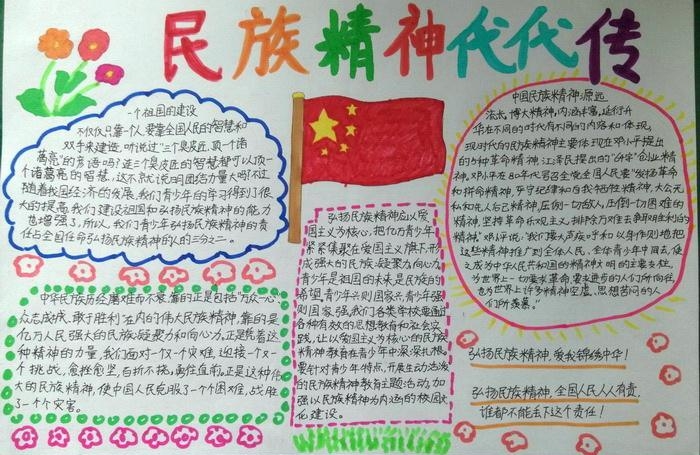 民族精神代代传
一个祖国的建设
不仅仅只靠一人,要靠全国人民的智慧和
双手来建造。听说过"三个臭皮匠,顶一个诸
葛亮"的彦语吗?连三个臭皮匠的智慧都可以顶一
个诸葛亮的智慧,这不就说明团结力量大吗?不过
随着我国经济的发展,我们青少年的学习得到了很
大的提高,我们建设祖国和弘扬民族精神的能力
也增强了。所以,我们青少年弘扬民族精神的责
任占全国任命弘扬民族精神的人的三分之二。
中华民族历经磨难而不衰,靠的正是包括万众一心、
众志成城,敢于胜利在内的伟大民族精神,靠的是
亿万人民强大的民族凝聚力和向心力。正是凭着这
种精神的力量,我们面对一次一个灾难,迎接一个又一
个挑战,愈挫愈坚,百折不挠,勇往直前。正是这种伟
大的民族精神,使中国人民克服了一个个困难,战胜
了一个个灾害。
弘扬民族精神应以爱
国主义为核心,把亿万青少年
紧紧集聚在爱国主义旗下,形
成强大的民族凝聚力向心力
青少年是祖国的未来,是民族的
希望,青少年兴则国家兴,青少年强
则国家强,我们各类学校要通过
各种有效的思想教育和社会实
践,让以爱国主义为核心的民族
精神教育在青少年中深深扎根。
要针对青少年特点,开展生动活泼
的民族精神教育主题活动,加
强以民族精神为内涵的校园文
化建设。
中国民族精神,源远
流长,博大精深,内涵丰富,延衍升
华,在不同的时代有不同的内容和体现。
现时代的民族精神主要体现在邓小平提出
的五种革命精神,江泽民提出的"64字"创业精
神,邓小平在80年代号召全党全国人民要"发扬革命
和拼命精神,严守纪律和自我牺牲精神,大公无
私和先人后己精神,压倒一切敌人、压倒一切困难的
精神,坚持革命乐观主义、排除万难去争取胜利的
精神"邓小平说:"我们要大声疾呼和以身作则地把
这些精神推广到全体人民、全体青少年中间去,使
之成为中华人民共和国的精神文明的主要支柱,
为世界上一切要求革命、要求进步的人们所向往,
也为世界上许多精神空虚、思想苦闷的人
们所羡慕。"
弘扬民族精神,爱我锦绣中华!
弘扬民族精神,全国人民人人有责,
谁都不能丢下这个责任!